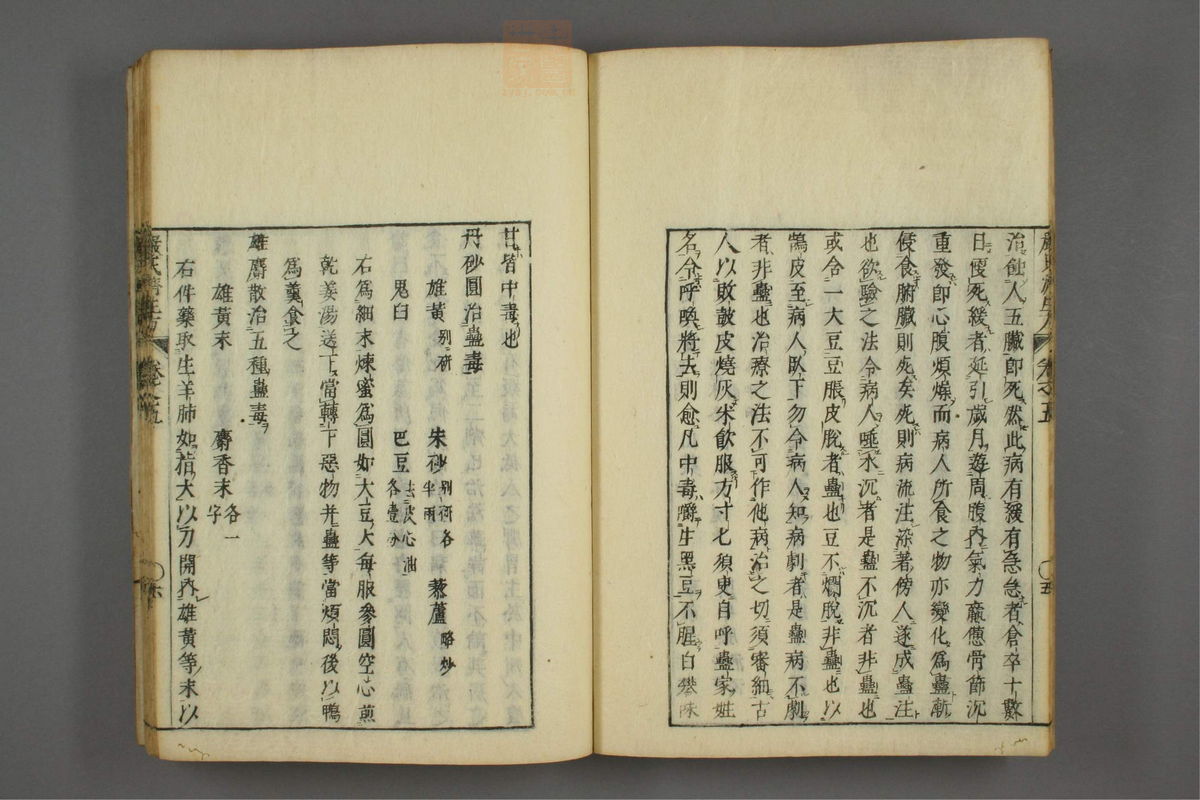 治蝕人五臟即死然此病有緩有急急者倉卒十數
日便死緩者延引歲月遊周腹內氣力羸憊骨節沉
重發即心腹煩燥而病人所食之物亦變化爲蠱漸
侵食腑臟則死矣死則病流注染著傍人遂成蠱注
也欲驗之法令病人唾水沉者是蠱不沉者非蠱也
或令含一大豆豆脹皮脫者蠱也豆不爛脫非蠱也以
鵠皮至病人臥下勿令病人知病劇者是蠱病不劇
者非蠱也治療之法不可作他病治之切須審細古
人以敗鼓皮燒灰米飲服方寸匕須臾自呼蠱家姓
名令呼喚將去則愈凡中毒嚼生黑豆不腥白礬味
嚴氏濟生方 卷之五 五
甘皆中毒也
丹砂圓治蠱毒
雄黃別研 朱砂別研各半兩 藜蘆略炒
鬼臼 巴豆去皮心油各壹分
右爲細末煉蜜爲圓如大豆大每服參圓空心煎
乾姜湯送下當轉下惡物并蠱等當煩悶後以鴨
爲羹食之
雄麝散治五種蠱毒
雄黃末 麝香末各一字
右件藥取生羊肺如指大以刀開內雄黃等末以
嚴氏濟生方 卷之五 六